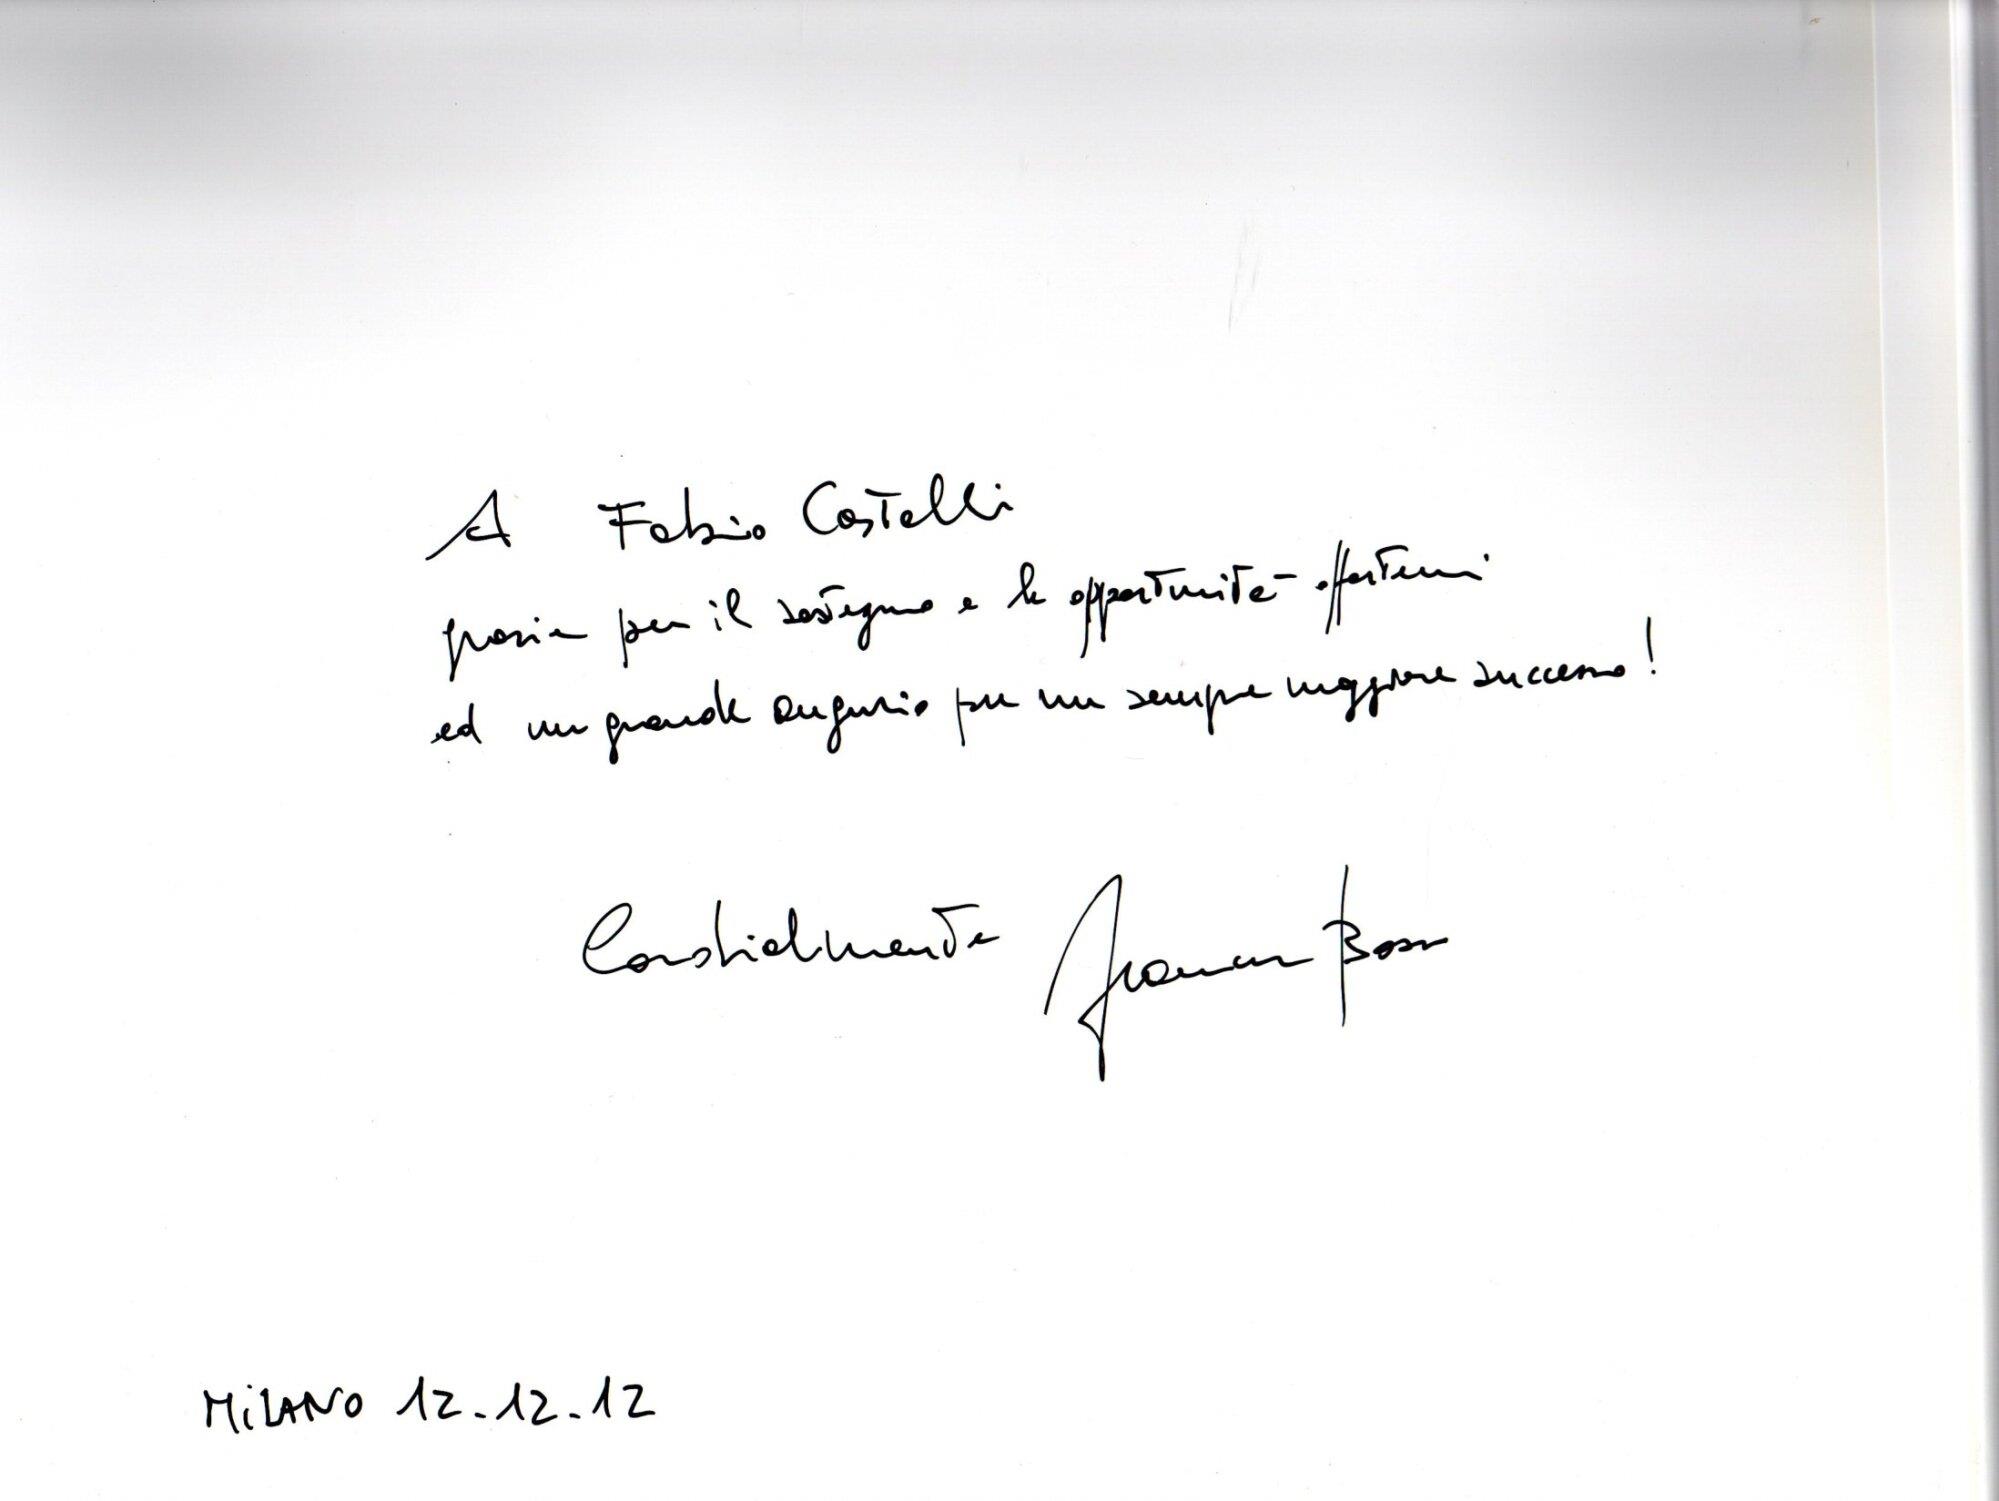 A Fabio Castelli
grazie per il sostegno e le opportunità offertemi
ed un grande augurio per un sempre maggiore successo!
Cordialmente Francesco Bosso
MiLANO 12-12-12